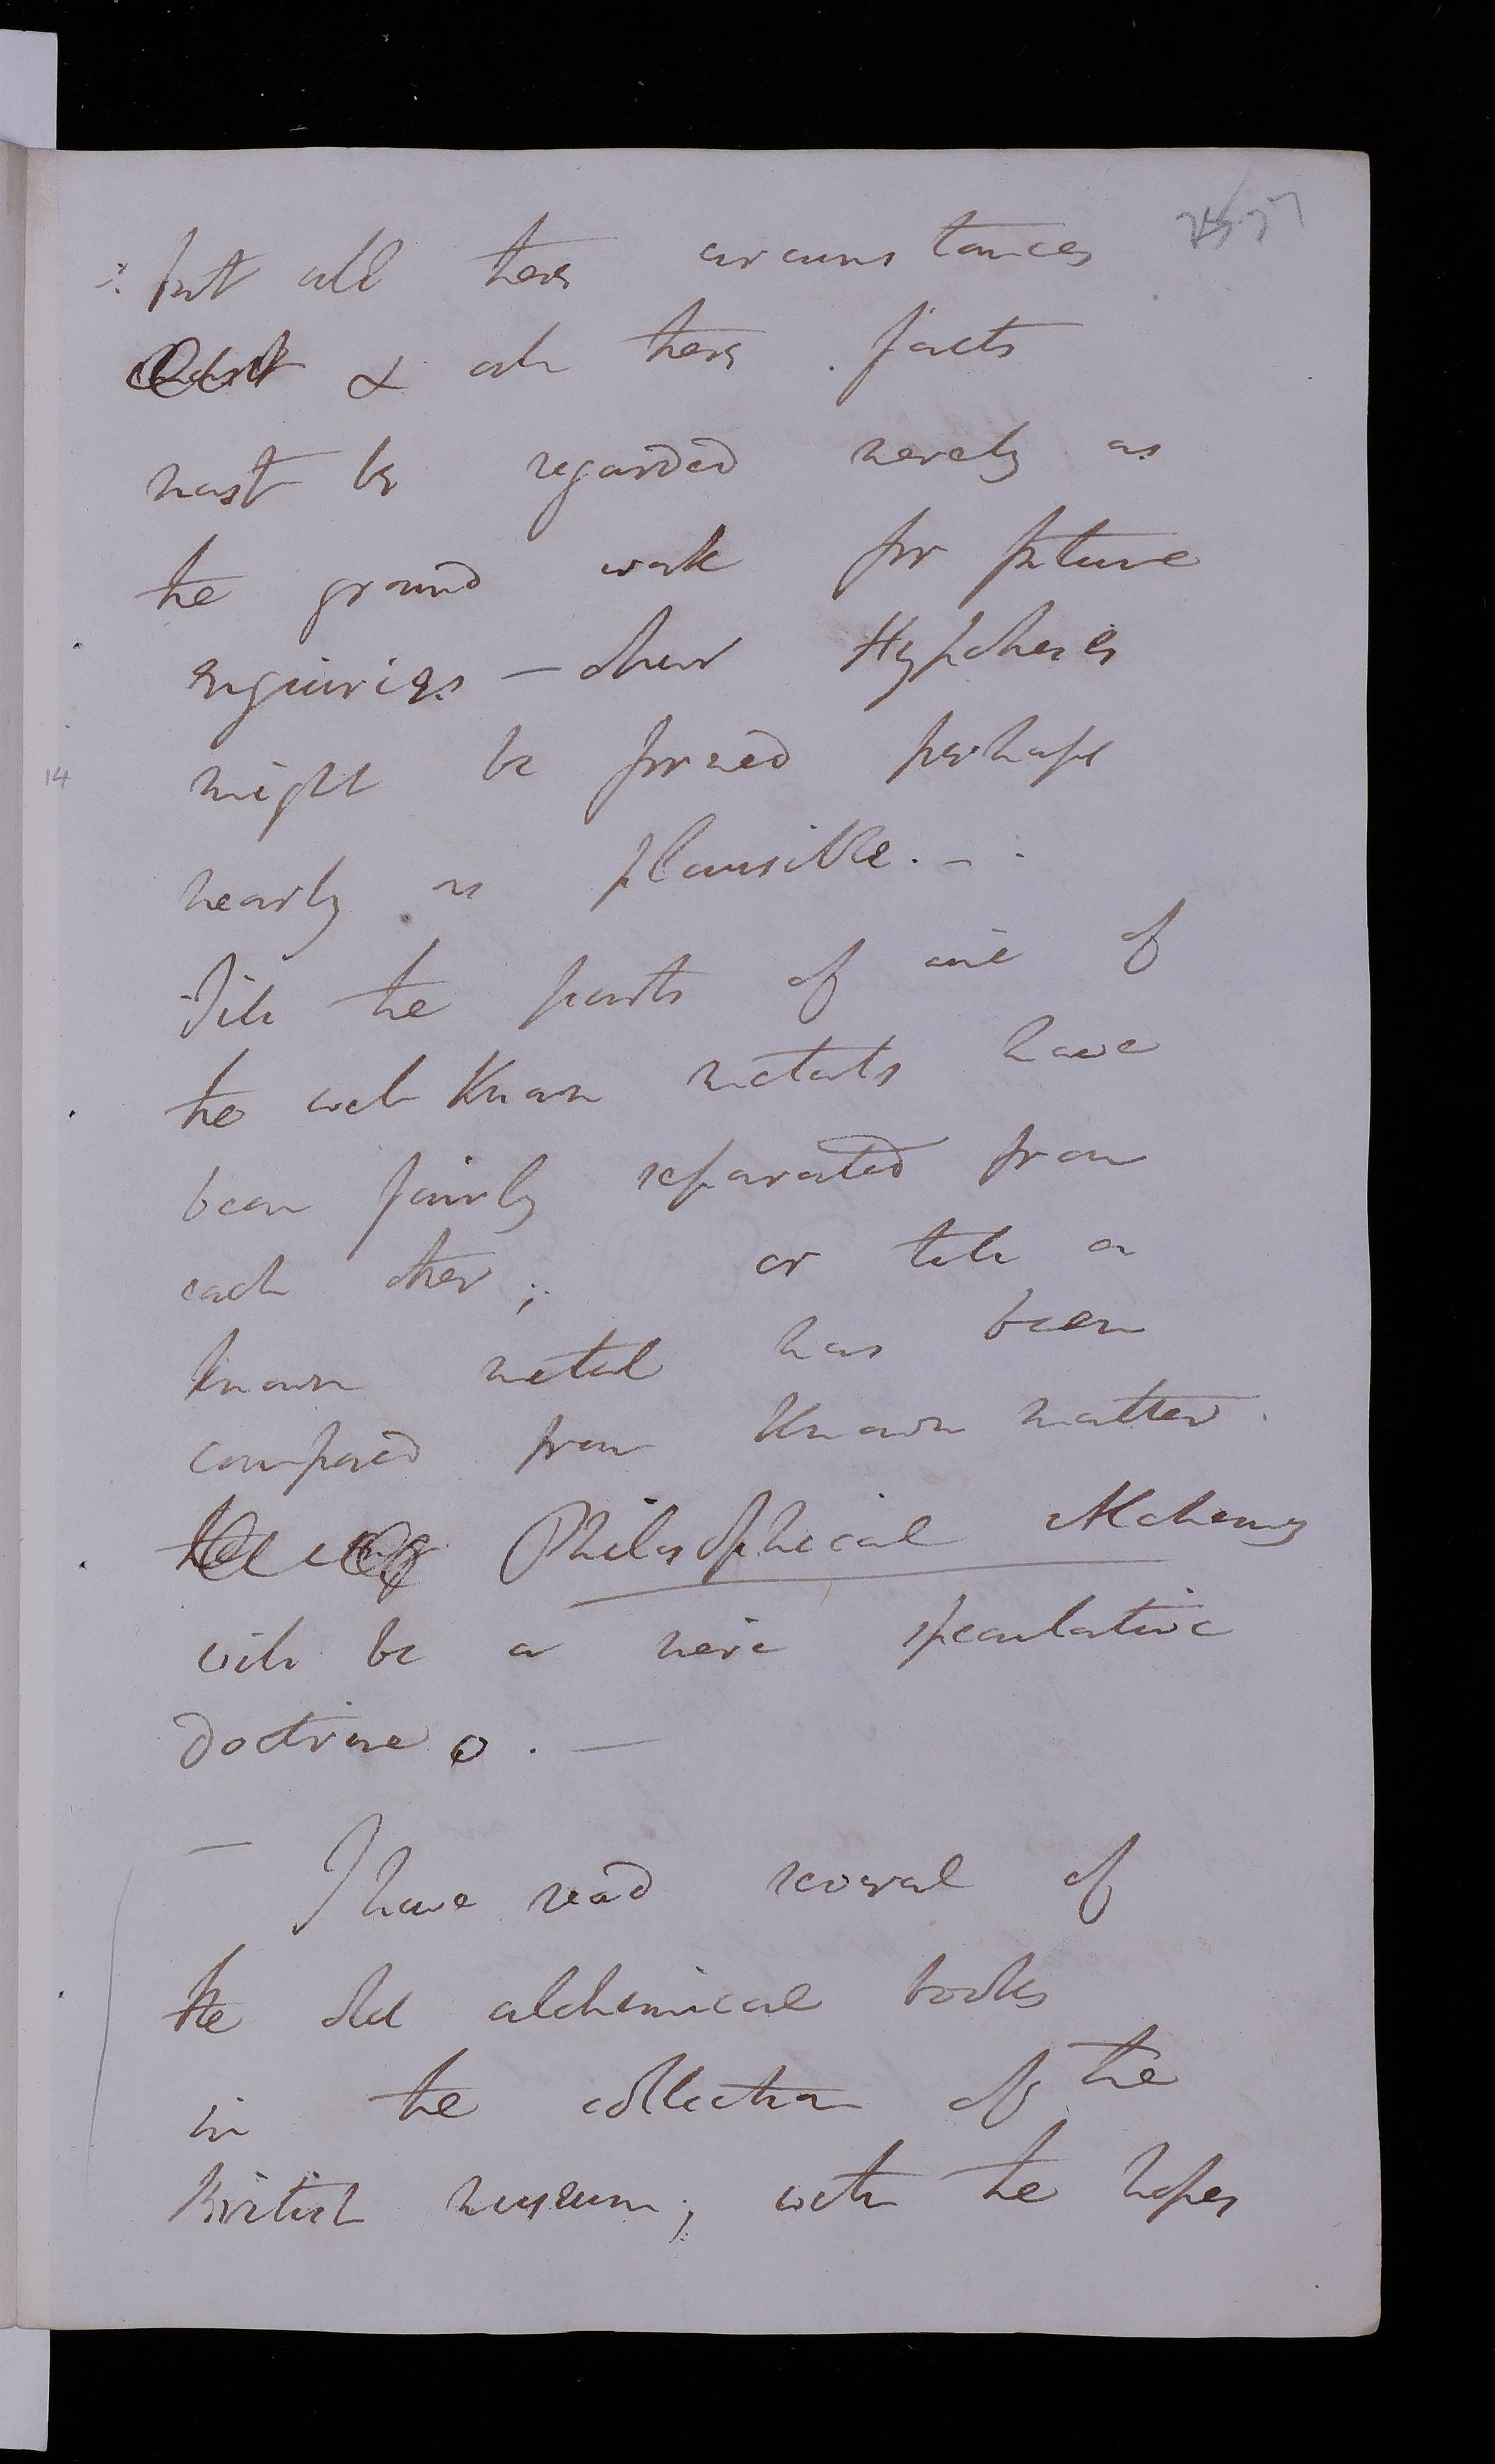 27
: but all these circumstances
& all these facts
must be regarded merely as
the ground work for future
enquiries – other Hypotheses
14
might be formed perhaps
nearly as plausible. – .
Till the parts of one of
the well known metals have
been fairly separated from
each other; or till a
known metal has been
composed from known matter.
Philosophical Alchemy
will be a mere speculative
doctrine . —
— I have read several of
the old alchemical books
in the collection of the
British museum; with the hopes